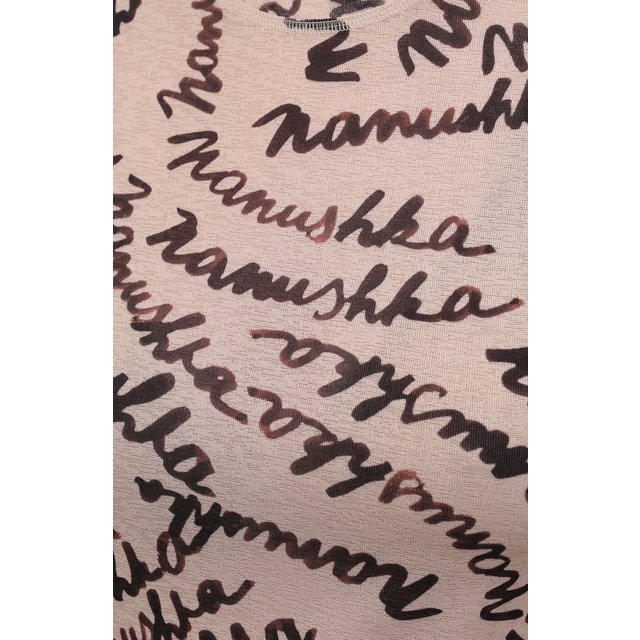 nanushka
nanushka
nanushka
nanushka
nanushka
nanushka
nanushka
nanushka
nanushka